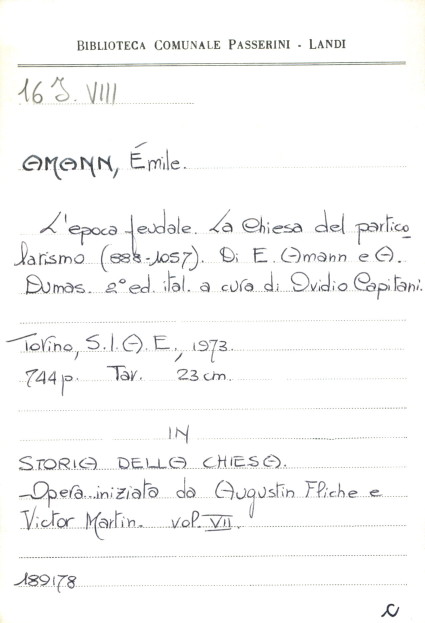 BIBLIOTECA COMUNALE PASSERINI - LANDI
16 J. VIII
AMANN, Émile.
L'epoca feudale. La Chiesa del partico
larismo (888-1057). Di E. Amann e A.
Dumas. 2° ed. ital. a cura di Ovidio Capitani.
Torino, S.I.A.E., 1973.
744 p. Tav. 23 cm.
IN
STORIA DELLA CHIESA.
Opera iniziata da Augustin Fliche e
Victor Martin. vol. VII.
189178